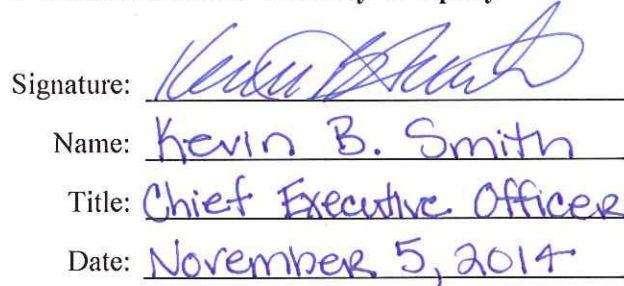 Signature: Kevin B Smith
Name: Kevin B. Smith
Title: Chief Executive Officer
Date: November 5, 2014